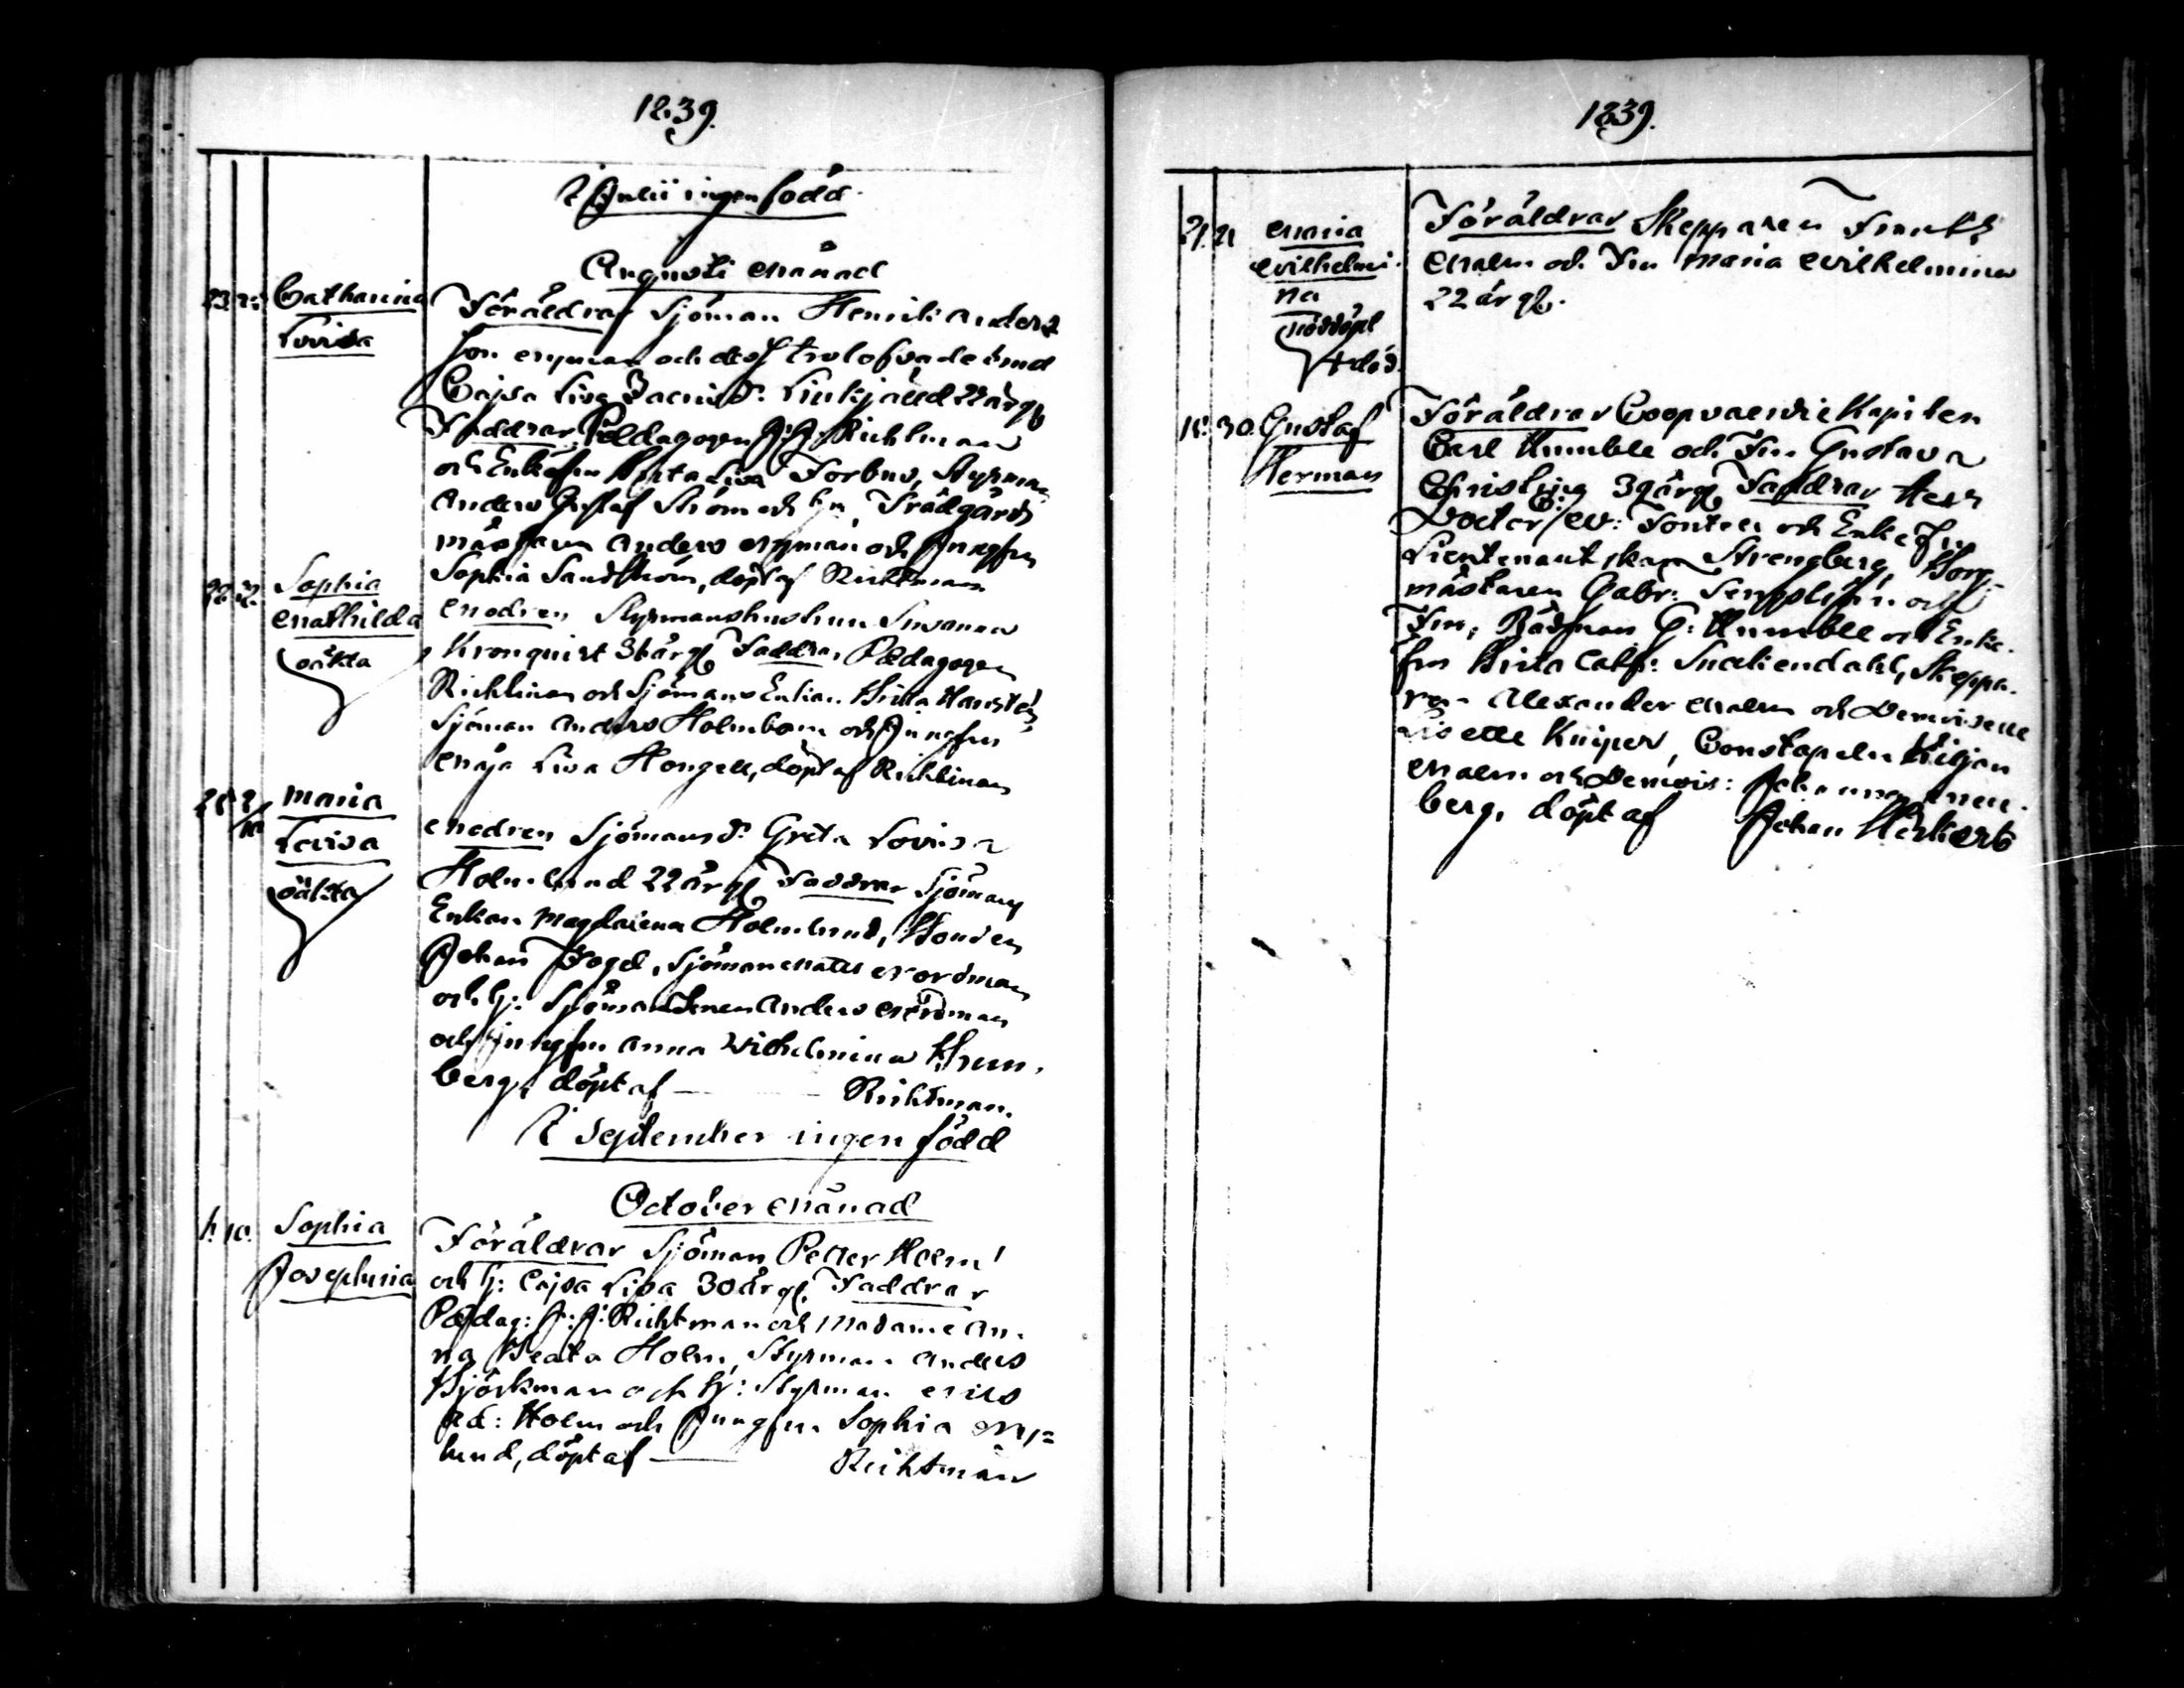 1839.
I Julii ingen född
Augusti månad
23. 25. Catharina Lovisa
Föräldrar Sjöman Henrik Anders
son Nyman och dess trolofvade brud
Cajsa Lisa Zacris d. Linkjälld 22 år gl
Faddrar Pædagogen J: J: Richtman
och Enkefru Brita Lisa Forbus, Styrman
Anders Gustaf Ström och hu, Trädgårds
mästaren Anders Nyman och Jungfru
Sophia Sandström, döpt af Richtman
Sophia Mathilda oäkta
Modren Styrmanshustrun Susanna
Kronquist 36 år gl Faddrar Pædagogen
Richtman och Sjömans Enkan Brita Hanstén
Sjöman Anders Holmbom och Jungfru
Maja Lisa Hongell, döpt af Richtman
Maria Lovisa oäkta
Modren Sjömans d. Greta Lovisa
Holmlund 22 år gl Faddrar Sjömans
Enkan Magdalena Holmlund, Bonden
Johan Fogel, Sjöman Matts Nordman
och h: Sjömansdrenen Anders Nordman
och Jungfru Anna Wilhelmina Brun,
berg, döpt af — Richtman.
I September ingen född
October månad
10. Sophia Josephina
Föräldrar Sjöman Petter Holm
och h: Cajsa Lisa 30 år gl, Faddrar
Pædag: J: J: Richtman och Madame An,
na Beata Holm, Styrman Anders
Björkman och h: Styrman Nils
Ad: Holm och Jungfru Sophia My=
lund, döpt af — Richtman
1839.
21. 21 Maria Wilhelmi- na nöddöpt † död
Föräldrar Skepparen Frants
Malm och Fru Maria Wilhelmina
22 år gl.
18. 30. Gustaf Herman
Föräldrar Coopvaerdie Kapiten
Carl Humble och Fru Gustava
Christina 39 år gl Faddrar Herr
Doctor E. W: Tontell och Enke Fru
Lieutenantskan Strengberg, Borg-
mästaren Gabr: och
Fru, Rådman G: Humble och Enke-
fru Brita Cath: Snellendahl, Skeppa-
ren Alexander Malm och Demoiselle
Lisette Kniper, Constapeln Kiljan
Malm och Demois: Johanna
berg, döpt af Johan